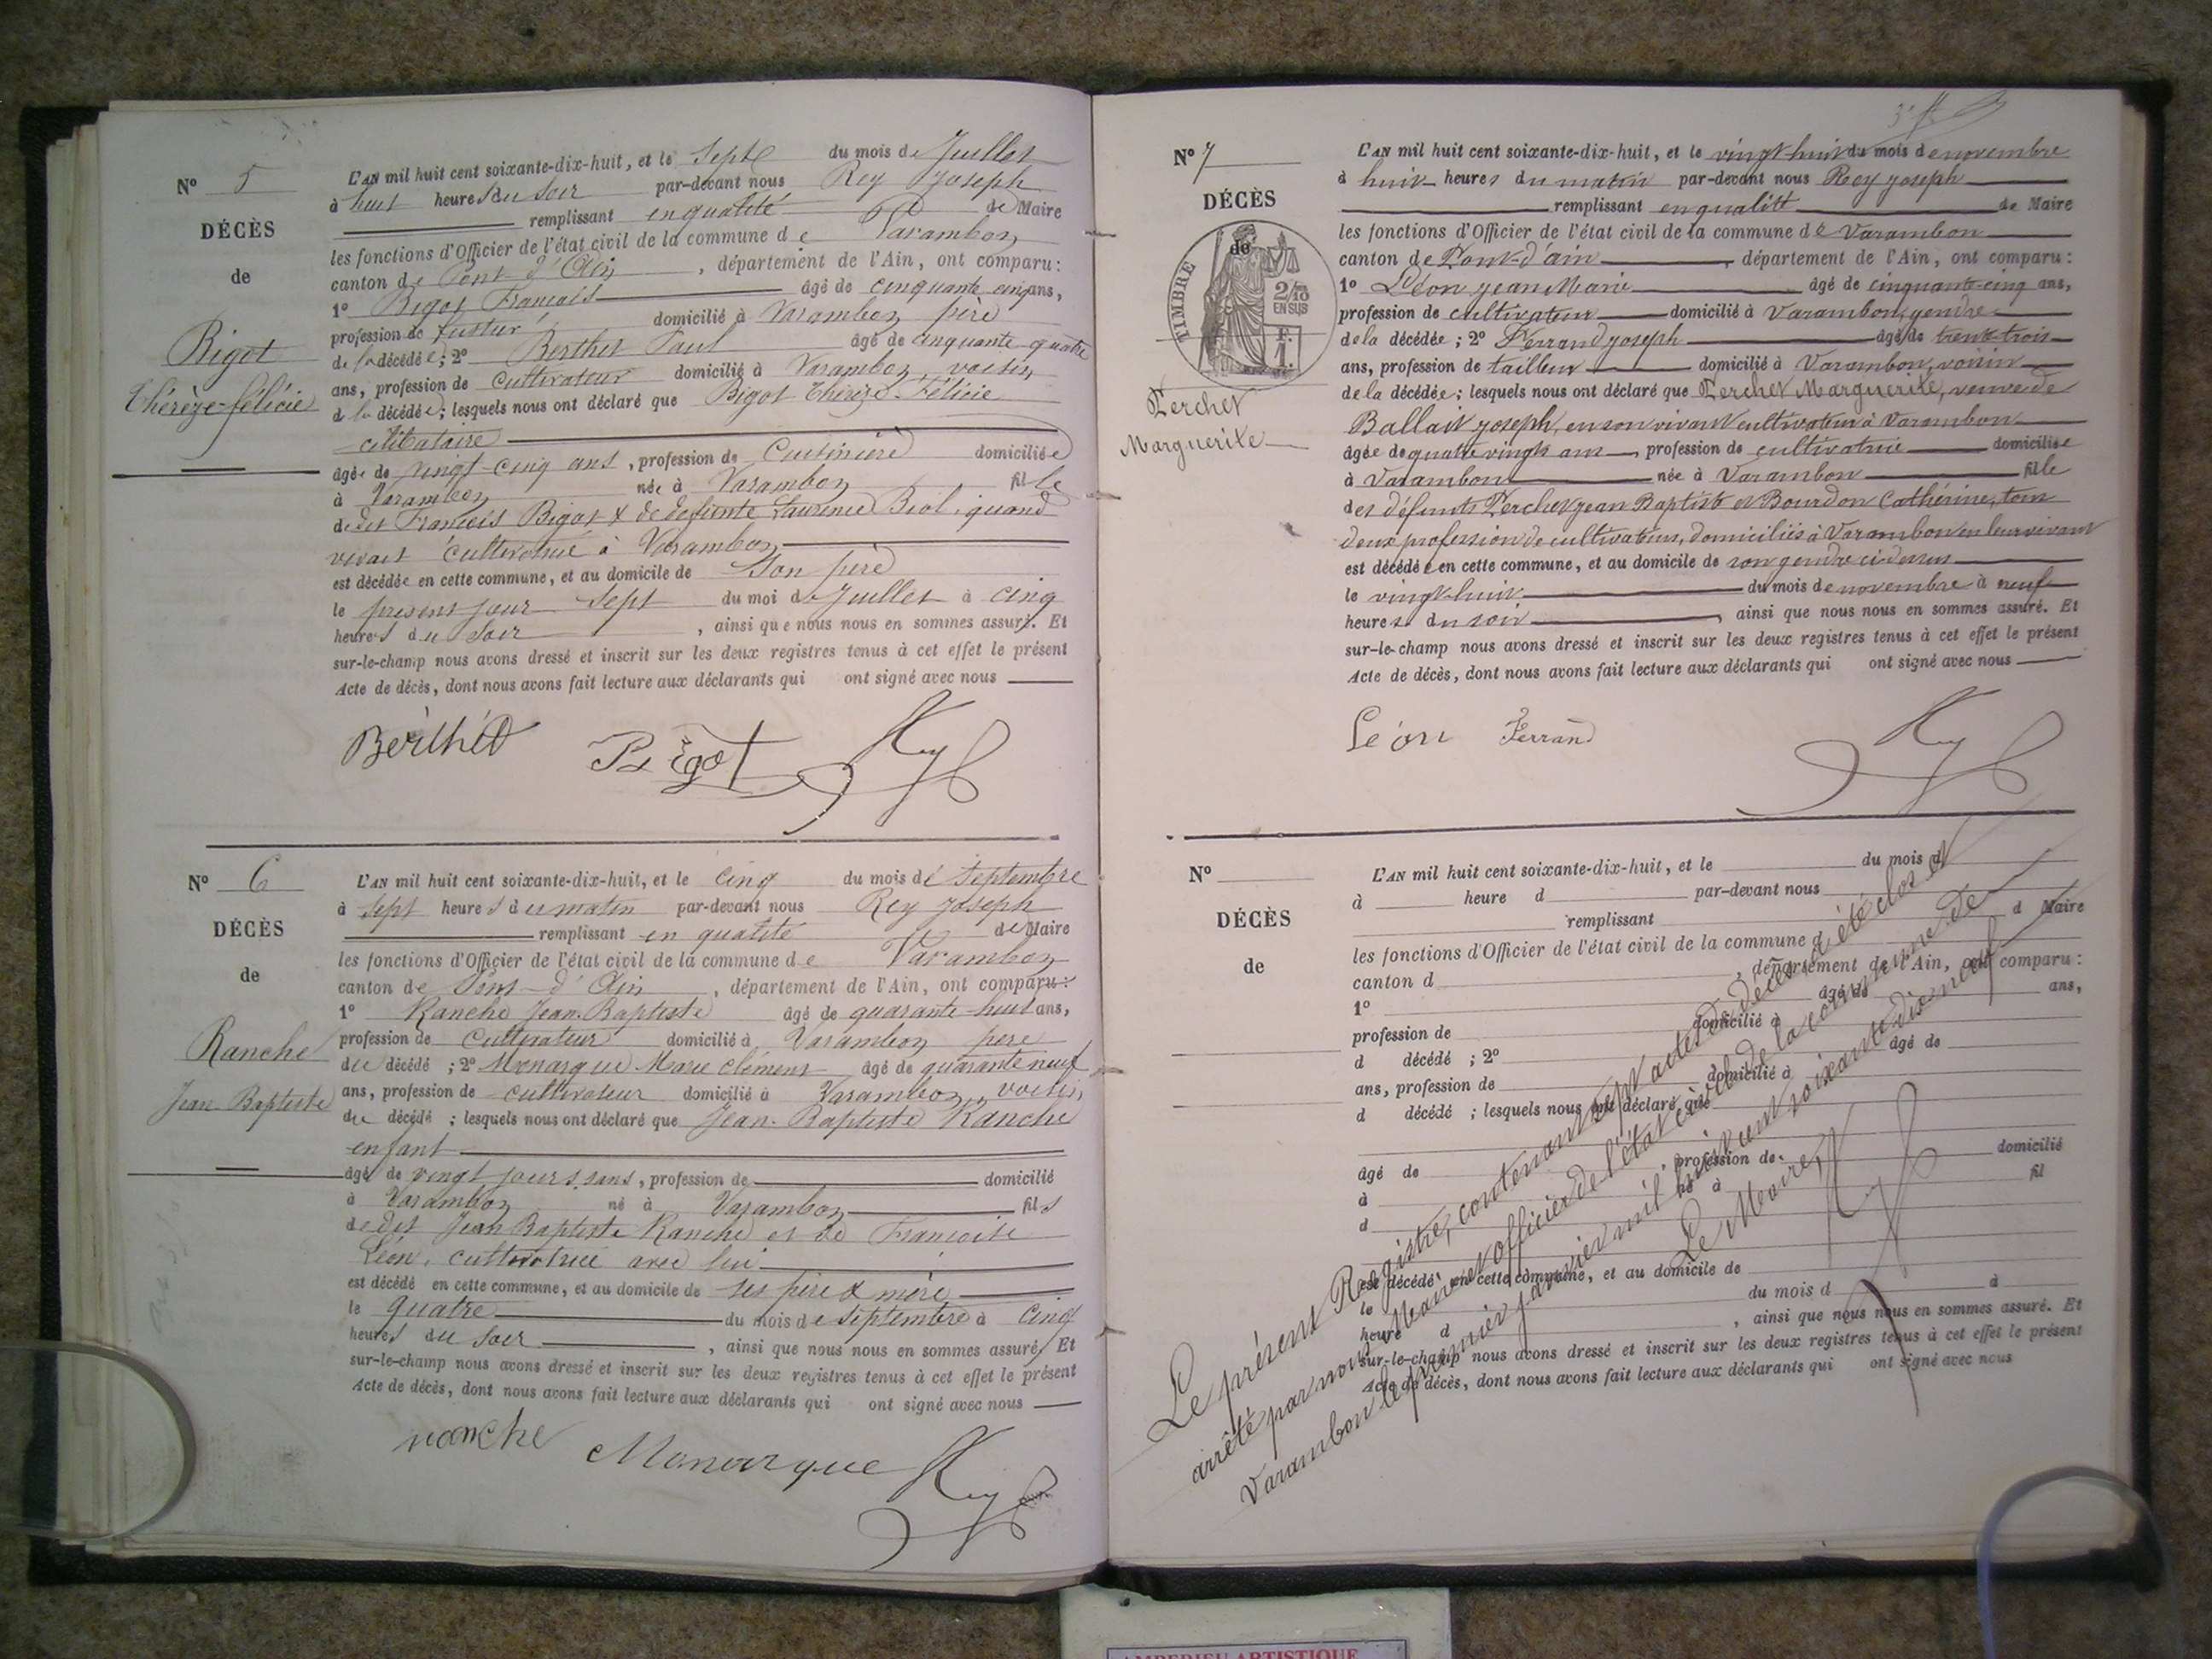 N° 5
DÉCÈS
de
Bigot
Thérèze-félicie
L'AN mil huit cent soixante-dix-huit, et le Sept du mois de Juillet
à huit heures du soir par-devant nous Rey Joseph
remplissant en qualité de Maire
les fonctions d'Officier de l'état civil de la commune de Varambon
canton de Pont-d'Ain, département de l'Ain, ont comparu:
1° Bigot François âgé de cinquante cinq ans,
profession de domicilié à Varambon père
de la décédée; 2° Berthet Paul âgé de cinquante-quatre
ans, profession de cultivateur domicilié à Varambon, voisin
de la décédée; lesquels nous ont déclaré que Bigot Thérèze-Félicie
célibataire
âgée de vingt-cinq ans, profession de Cuisinière domiciliée
à Varambon née à Varambon fille
de dit François Bigot & de defunte Laurence Biol, quand
vivait cultivatrice à Varambon
est décédée en cette commune, et au domicile de Son père
le présent jour Sept du moi de Juillet à cinq
heures du Soir, ainsi que nous nous en sommes assuré. Et
sur-le-champ nous avons dressé et inscrit sur les deux registres tenus à cet effet le présent
Acte de décès, dont nous avons fait lecture aux déclarants qui ont signé avec nous
Berthet Bigot Rey
N° 6
DÉCÈS
de
Ranche
Jean-Baptiste
L'AN mil huit cent soixante-dix-huit, et le cinq du mois de Septembre
à Sept heures du matin par-devant nous Rey Joseph
remplissant en qualité de Maire
les fonctions d'Officier de l'état civil de la commune de Varambon
canton de Pont-d'Ain, département de l'Ain, ont comparu:
1° Ranche Jean-Baptiste âgé de quarante-huit ans,
profession de Cultivateur domicilié à Varambon père
du décédé; 2° Monarque Marie clément âgé de quarante neuf
ans, profession de cultivateur domicilié à Varambon, voisin,
du décédé; lesquels nous ont déclaré que Jean-Baptiste Ranche
enfant
âgé de vingt jours, sans, profession de domicilié
à Varambon né à Varambon fils
de dit Jean Baptiste Ranche et de Françoise
Léon, cultivatrice avec lui
est décédé en cette commune, et au domicile de ses père & mère
le quatre du mois de Septembre à cinq
heures du Soir, ainsi que nous nous en sommes assuré. Et
sur-le-champ nous avons dressé et inscrit sur les deux registres tenus à cet effet le présent
Acte de décès, dont nous avons fait lecture aux déclarants qui ont signé avec nous
ranche Monarque Rey
N° 7
DÉCÈS
de
TIMBRE
2/10
EN SUS
F.
1.
Perchet
Marguerite
L'AN mil huit cent soixante-dix-huit, et le vingt huit du mois de novembre
à huit heures du matin par-devant nous Rey joseph
remplissant en qualité de Maire
les fonctions d'Officier de l'état civil de la commune de Varambon
canton de Pont-d'ain, département de l'Ain, ont comparu:
1° Léon jean Marie âgé de cinquante-cinq ans,
profession de cultivateur domicilié à Varambon, gendre
de la décédée; 2° Ferrand joseph âgé de trente-trois
ans, profession de tailleur domicilié à Varambon, voisin
de la décédée; lesquels nous ont déclaré que Perchet Marguerite, veuve de
Ballait joseph, en son vivant cultivateur à Varambon
âgée de quatre vingts ans, profession de cultivatrice domiciliée
à Varambon née à Varambon fille
des défunts Perchet jean Baptiste et Bourdon Cathérine, tous
deux profession de cultivateurs, domiciliés à Varambon en leur vivant
est décédée en cette commune, et au domicile de son gendre ci-dessus
le vingt-huit du mois de novembre à neuf
heures du soir, ainsi que nous nous en sommes assuré. Et
sur-le-champ nous avons dressé et inscrit sur les deux registres tenus à cet effet le présent
Acte de décès, dont nous avons fait lecture aux déclarants qui ont signé avec nous
Léon Ferrand Rey
N°
DÉCÈS
de
L'AN mil huit cent soixante-dix-huit, et le du mois d
à heure d par-devant nous
remplissant d Maire
les fonctions d'Officier de l'état civil de la commune d
canton d, département de l'Ain, ont comparu:
1° âgé de ans,
profession de domicilié à
d décédé; 2° âgé de
ans, profession de domicilié à
d décédé; lesquels nous ont déclaré que
âgé de, profession de domicilié
à né à fil
d
est décédé en cette commune, et au domicile de
le du mois d à
heure d, ainsi que nous nous en sommes assuré. Et
sur-le-champ nous avons dressé et inscrit sur les deux registres tenus à cet effet le présent
Acte de décès, dont nous avons fait lecture aux déclarants qui ont signé avec nous
Le présent Registre, contenant sept actes de décès, a été clos et
arrêté par nous Maire et officier de l'état civil de la commune de
Varambon le premier janvier mil huit cent soixante dix neuf
Le Maire,
Rey
AMBERIEU ARTISTIQUE